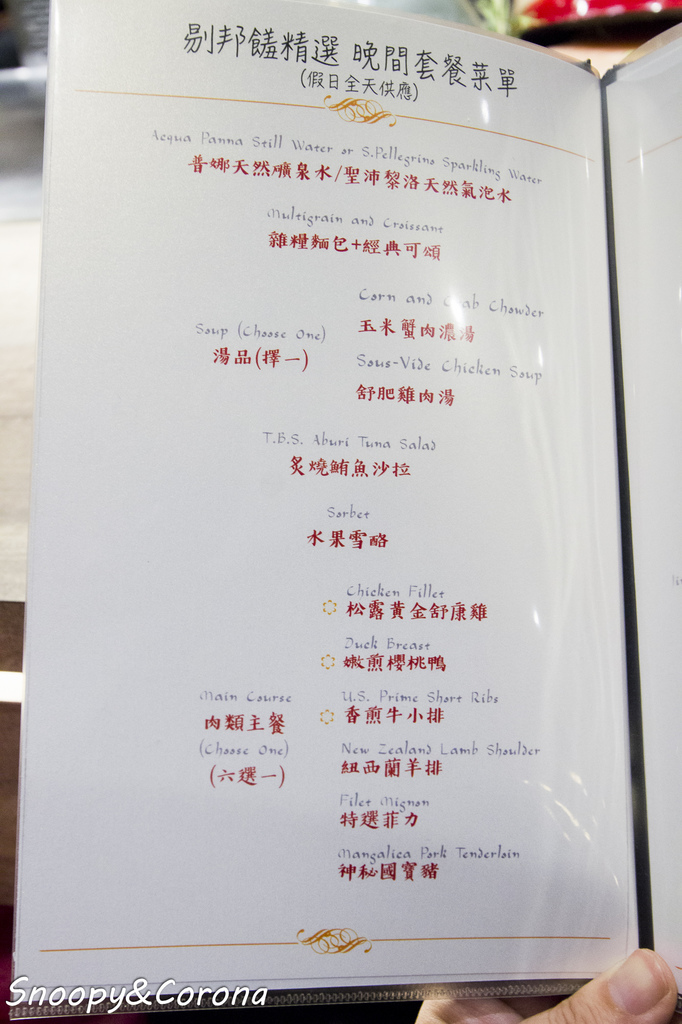 剔邦饈精選 晚間套餐菜單
(假日全天供應)
Acqua Panna Still Water or S.Pellegrino Sparkling Water
普娜天然礦泉水/聖沛黎洛天然氣泡水
Multigrain and Croissant
雜糧麵包+經典可頌
Soup (Choose One)
湯品(擇一)
Corn and Crab Chowder
玉米蟹肉濃湯
Sous-Vide Chicken Soup
舒肥雞肉湯
T.B.S. Aburi Tuna Salad
炙燒鮪魚沙拉
Sorbet
水果雪酪
Main Course
肉類主餐
(Choose One)
(六選一)
Chicken Fillet
松露黃金舒康雞
Duck Breast
嫩煎櫻桃鴨
U.S. Prime Short Ribs
香煎牛小排
New Zealand Lamb Shoulder
紐西蘭羊排
Filet Mignon
特選菲力
Mangalica Pork Tenderloin
神秘國寶豬
Snoopy&Corona